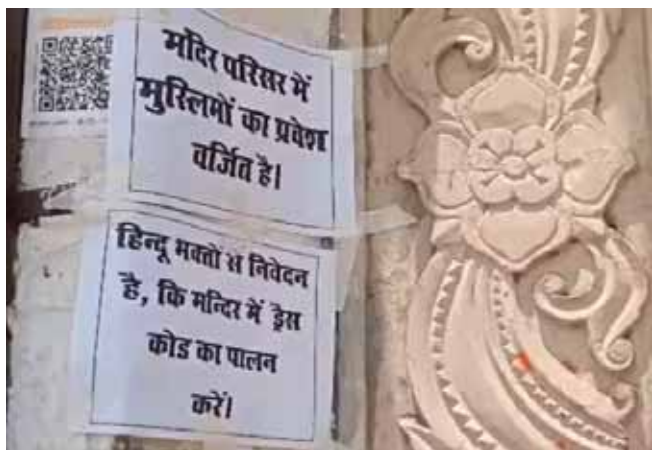 मंदिर परिसर में
मुस्लिमों का प्रवेश
वर्जित है।
हिन्दू भक्तों से निवेदन
है, कि मन्दिर में ड्रैस
कोड का पालन
करें।